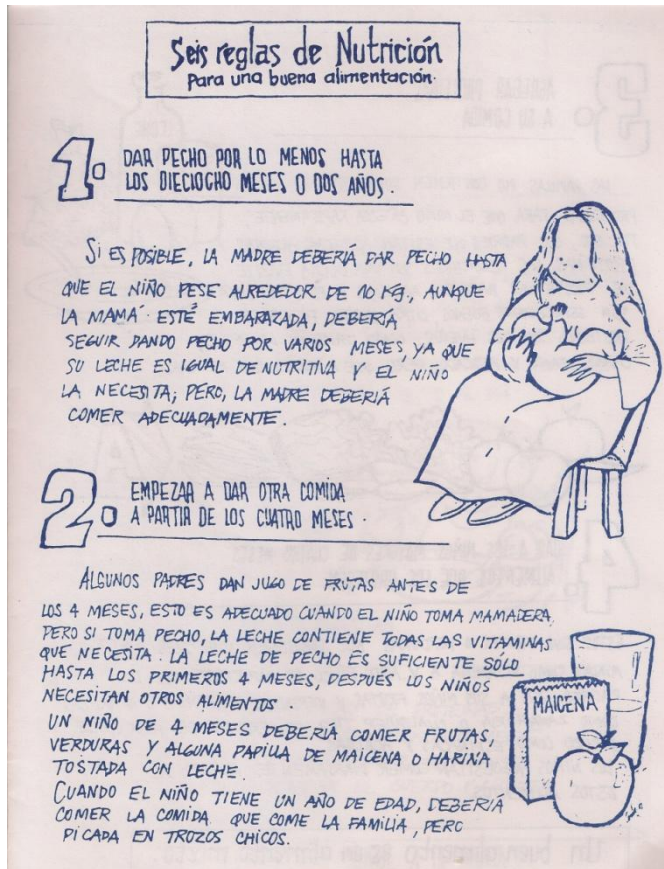 Seis reglas de Nutrición
Para una buena alimentación.
1. DAR PECHO POR LO MENOS HASTA
LOS DIECIOCHO MESES O DOS AÑOS.
SI ES POSIBLE, LA MADRE DEBERIÁ DAR PECHO HASTA
QUE EL NIÑO PESE ALREDEDOR DE 10 Kg., AUNQUE
LA MAMÁ ESTÉ EMBARAZADA, DEBERIÁ
SEGUIR DANDO PECHO POR VARIOS MESES, YA QUE
SU LECHE ES IGUAL DE NUTRITIVA Y EL NIÑO
LA NECESITA; PERO, LA MADRE DEBERIÁ
COMER ADECUADAMENTE.
2. EMPEZAR A DAR OTRA COMIDA
A PARTIR DE LOS CUATRO MESES.
ALGUNOS PADRES DAN JUGO DE FRUTAS ANTES DE
LOS 4 MESES, ESTO ES ADECUADO CUANDO EL NIÑO TOMA MAMADERA,
PERO SI TOMA PECHO, LA LECHE CONTIENE TODAS LAS VITAMINAS
QUE NECESITA. LA LECHE DE PECHO ES SUFICIENTE SÓLO
HASTA LOS PRIMEROS 4 MESES, DESPUÉS LOS NIÑOS
NECESITAN OTROS ALIMENTOS.
UN NIÑO DE 4 MESES DEBERIÁ COMER FRUTAS,
VERDURAS Y ALGUNA PAPILLA DE MAICENA O HARINA
TOSTADA CON LECHE.
CUANDO EL NIÑO TIENE UN AÑO DE EDAD, DEBERIÁ
COMER LA COMIDA QUE COME LA FAMILIA, PERO
PICADA EN TROZOS CHICOS.
MAICENA